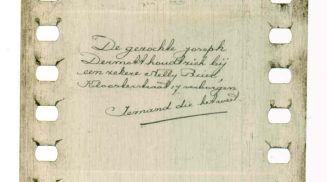 De gezochte Joseph
Dermolt houdt zich bij
een zekere Nelly Bruis,
Kloosterstraat 17 verborgen
Iemand die het weet